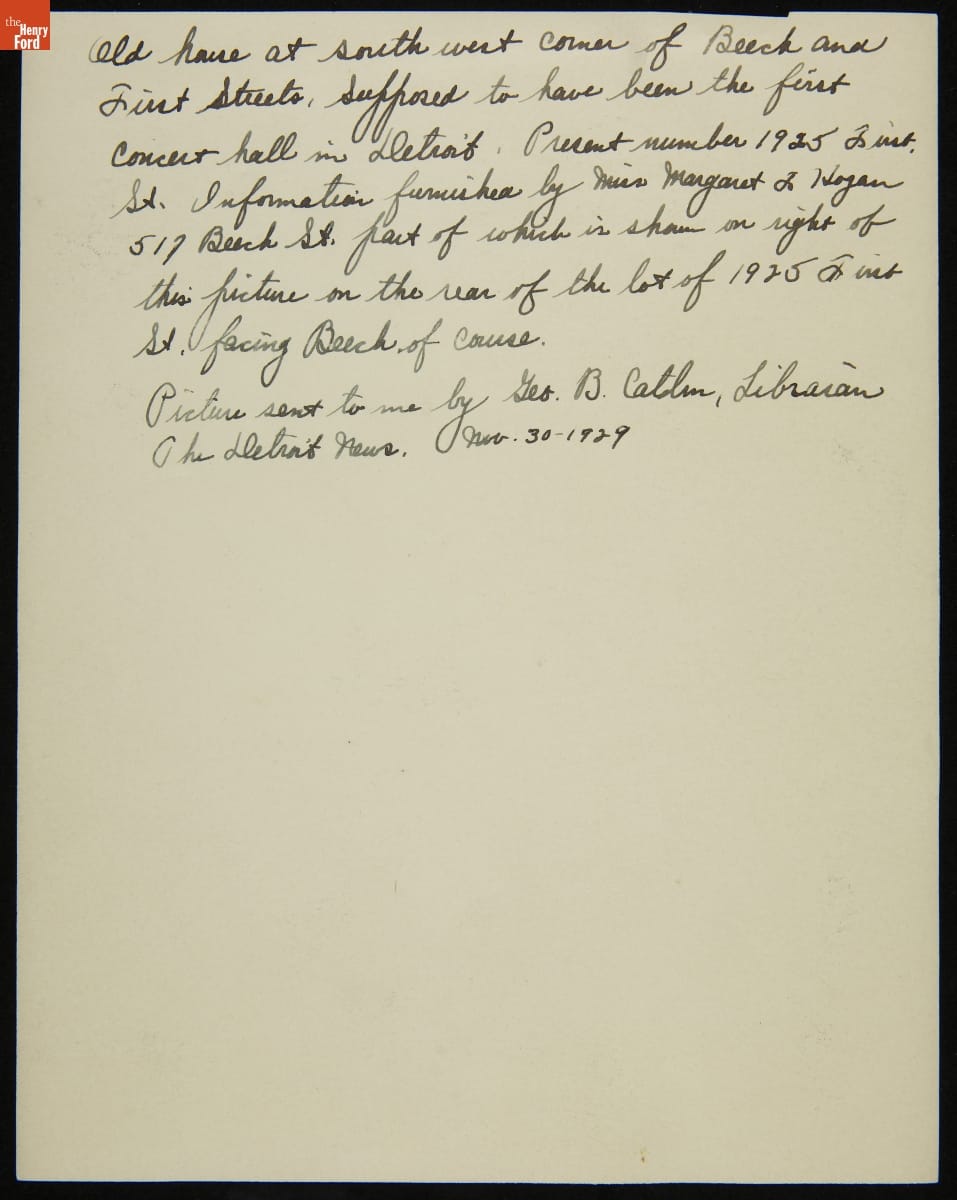 the
Henry
Ford
Old house at south west corner of Beech and
First Streets, Supposed to have been the first
Concert hall in Detroit. Present number 1925 First.
St. Information furnished by Miss Margaret F Hogan
517 Beech St. part of which is shown on right of
this picture on the rear of the lot of 1925 First
St. facing Beech, of course.
Picture sent to me by Geo. B. Catlin, Librarian
The Detroit News. Nov. 30-1929